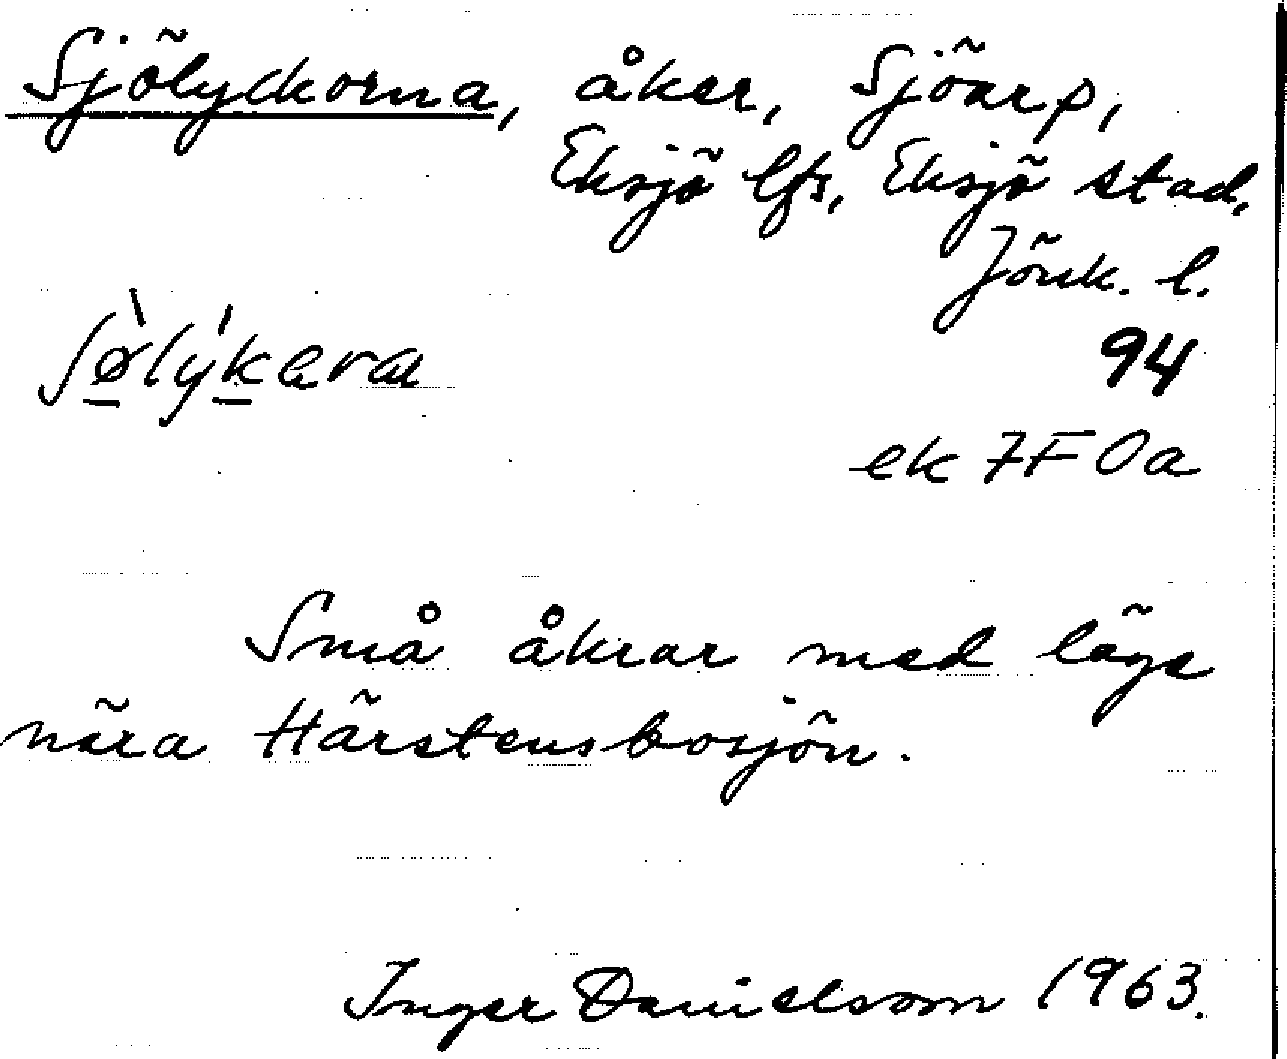 Sjölyckorna, åker, Sjöarp,
Eksjö lfs, Eksjö stad,
Jönk. l.
ʃø̠̀lýk̠ɐra
94
ek 7F 0a
Små åkrar med läge
nära Härstensbosjön.
Inger Danielsson 1963.